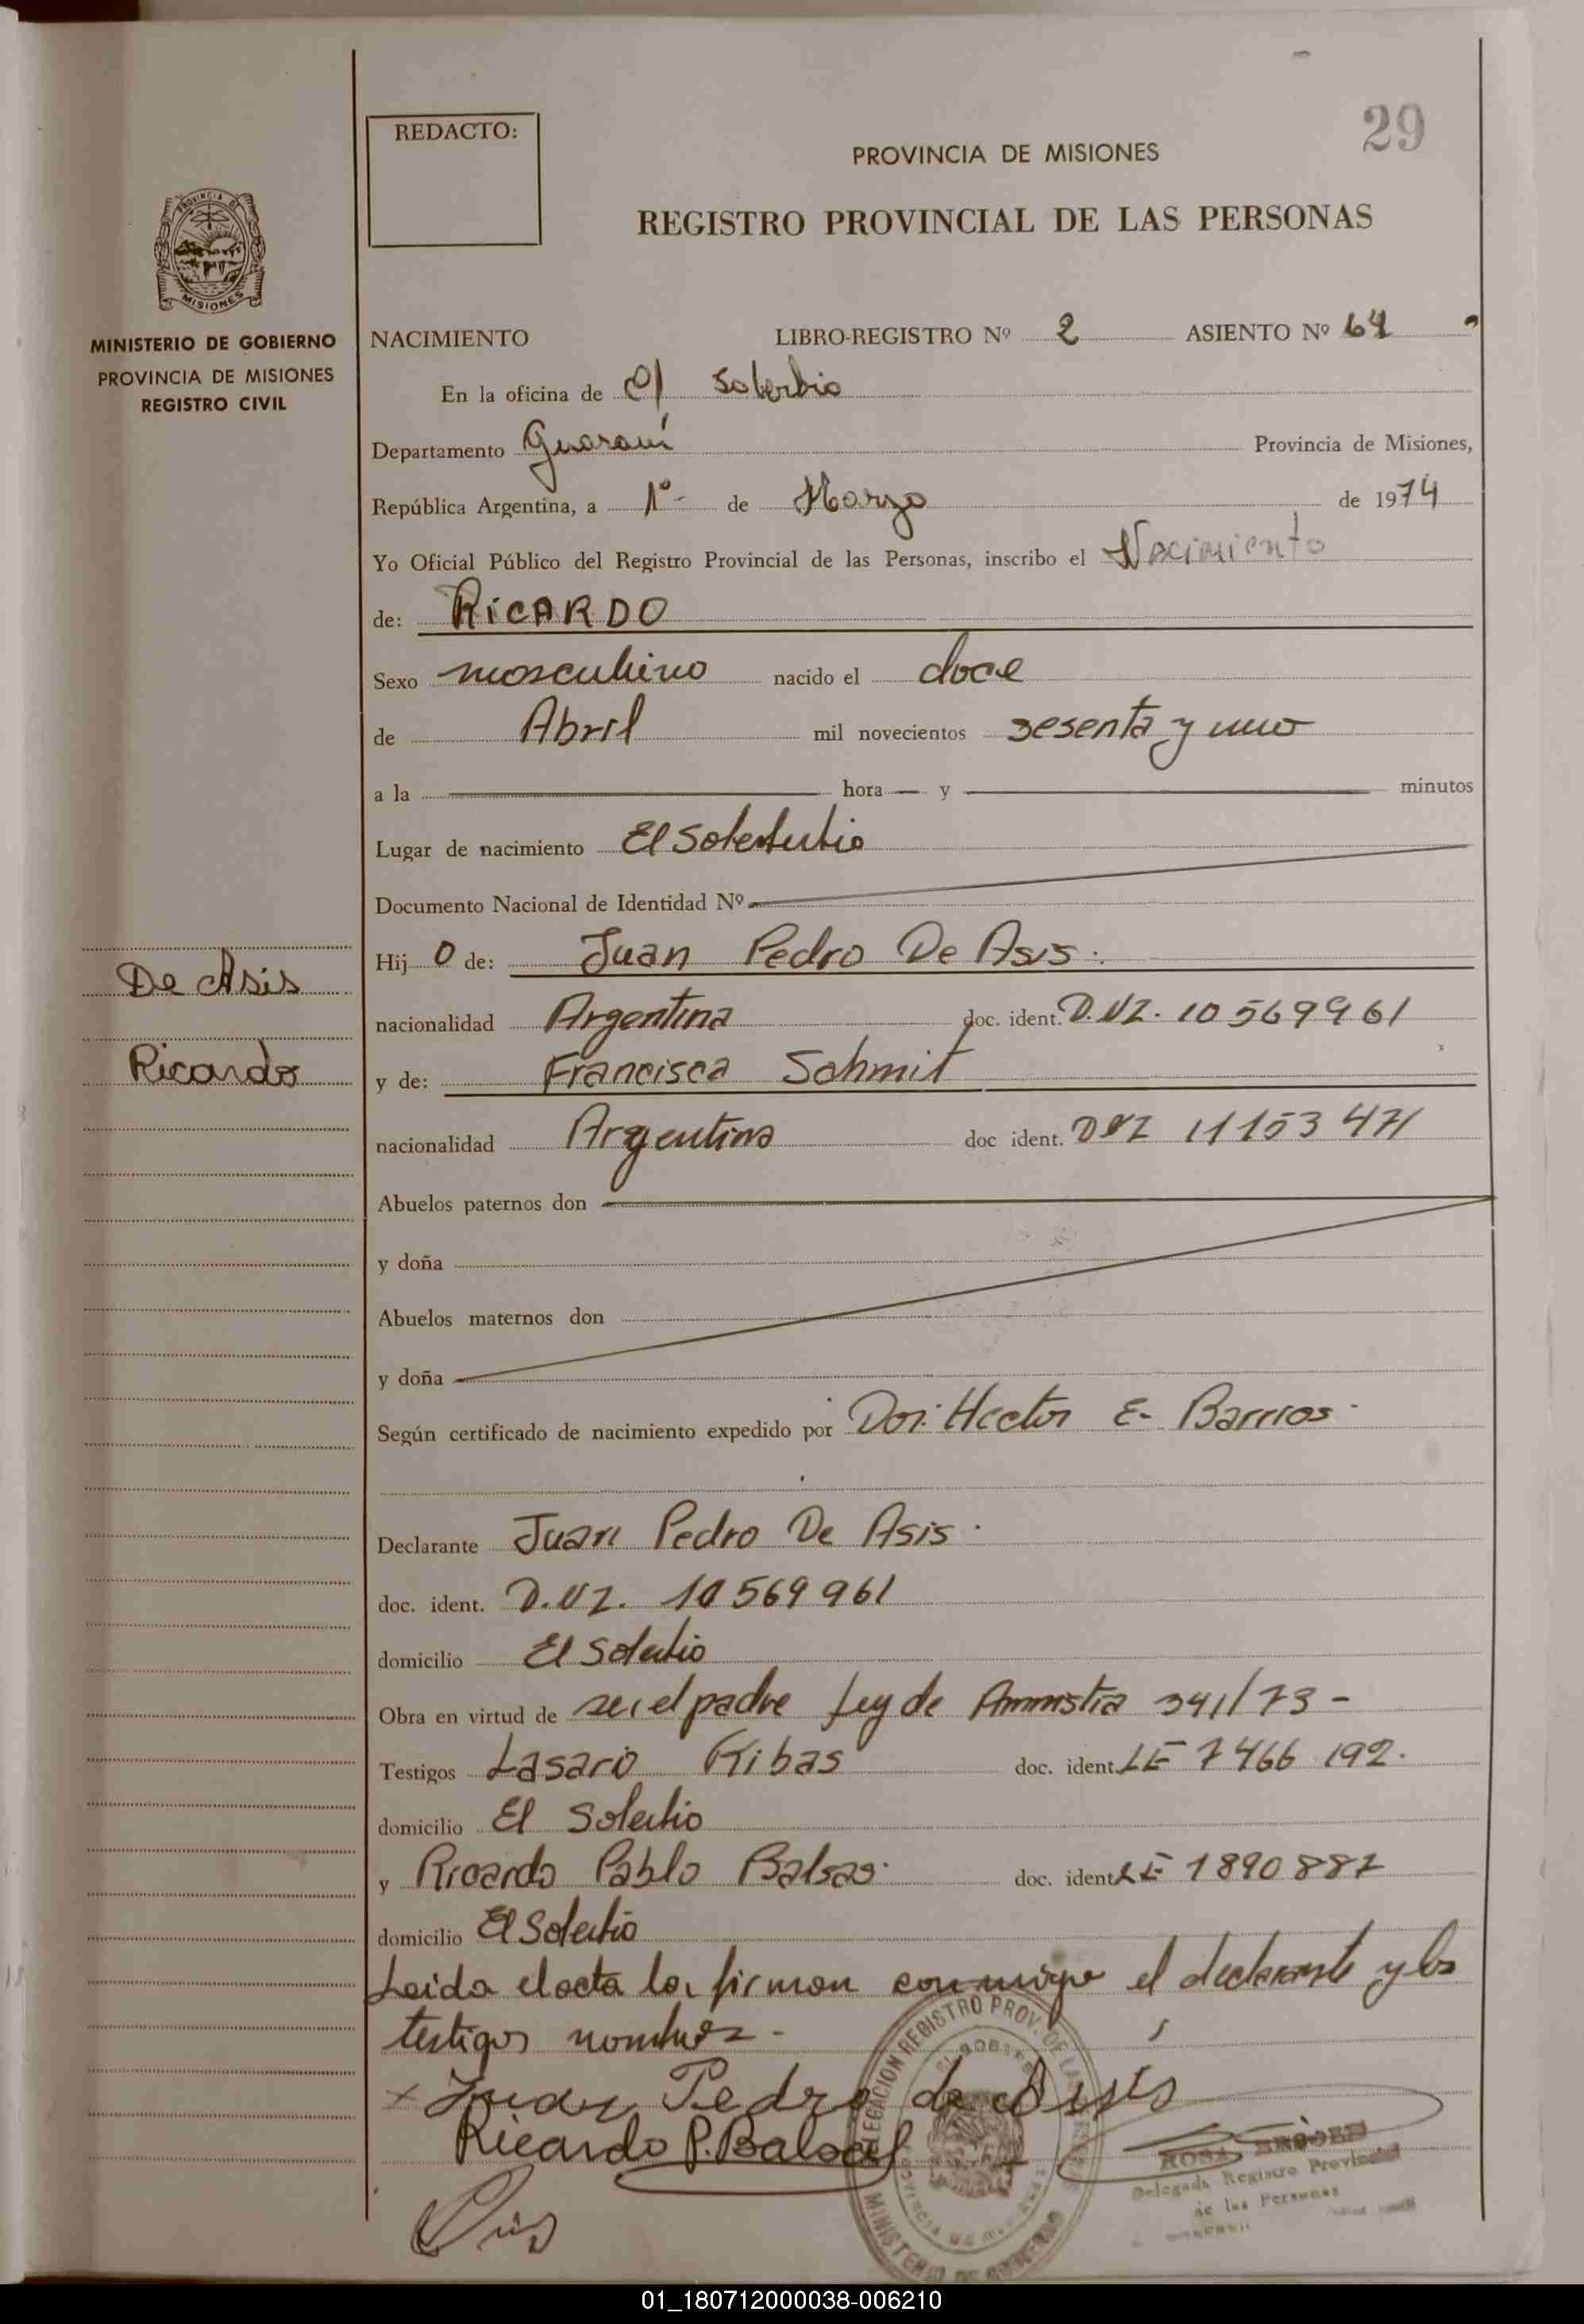 29
REDACTO:
PROVINCIA DE MISIONES
REGISTRO PROVINCIAL DE LAS PERSONAS
PROVINCIA DE
MISIONES
MINISTERIO DE GOBIERNO
PROVINCIA DE MISIONES
REGISTRO CIVIL
NACIMIENTO LIBRO-REGISTRO Nº 2 ASIENTO Nº 64
En la oficina de El Soberbio
Departamento Guaraní Provincia de Misiones,
República Argentina, a 1º- de Marzo de 1974
Yo Oficial Público del Registro Provincial de las Personas, inscribo el Nacimiento
de: RICARDO
Sexo masculino nacido el doce
de Abril mil novecientos sesenta y uno
a la hora y minutos
Lugar de nacimiento El Soberbio
Documento Nacional de Identidad Nº
Hij o de: Juan Pedro De Asis.
De Asis
nacionalidad Argentina doc. ident. D.NI. 10 569961
Ricardo
y de: Francisca Schmit
nacionalidad Argentina doc ident. DNI 11153471
Abuelos paternos don
y doña
Abuelos maternos don
y doña
Según certificado de nacimiento expedido por Dor. Hector E. Barrios.
Declarante Juan Pedro De Asis.
doc. ident. D.NI. 10569961
domicilio El Soberbio
Obra en virtud de ser el padre Ley de Amnistia 341/73-
Testigos Lasaro Ribas doc. ident. LE 7466 192.
domicilio El Soberbio
y Ricardo Pablo Balsas. doc. ident. LE 1890887
domicilio El Soberbio
Leida el acta la firman conmigo el declarante y los
testigos
x Juan Pedro de Asis
Ricardo P. Balsas
DELEGACION REGISTRO PROV. DE LAS
MINISTERIO DE GOBIERNO
ROSA
Delegada Registro Provincial
de las Personas
01_180712000038-006210